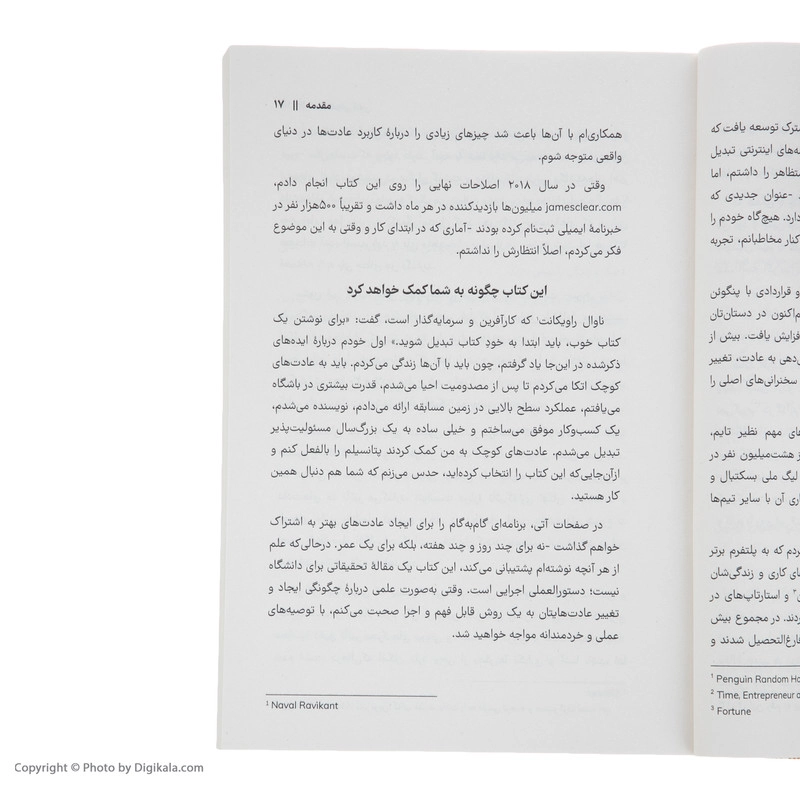 مقدمه || ۱۷
همکاری‌ام با آن‌ها باعث شد چیزهای زیادی را دربارهٔ کاربرد عادت‌ها در دنیای
واقعی متوجه شوم.
وقتی در سال ۲۰۱۸ اصلاحات نهایی را روی این کتاب انجام دادم،
jamesclear.com میلیون‌ها بازدیدکننده در هر ماه داشت و تقریباً ۵۰۰هزار نفر در
خبرنامهٔ ایمیلی ثبت‌نام کرده بودند -آماری که در ابتدای کار و وقتی به این موضوع
فکر می‌کردم، اصلاً انتظارش را نداشتم.
این کتاب چگونه به شما کمک خواهد کرد
ناوال راویکانت¹ که کارآفرین و سرمایه‌گذار است، گفت: «برای نوشتن یک
کتاب خوب، باید ابتدا به خودِ کتاب تبدیل شوید.» اول خودم دربارهٔ ایده‌های
ذکرشده در این‌جا یاد گرفتم، چون باید با آن‌ها زندگی می‌کردم. باید به عادت‌های
کوچک اتکا می‌کردم تا پس از مصدومیت احیا می‌شدم، قدرت بیشتری در باشگاه
می‌یافتم، عملکرد سطح بالایی در زمین مسابقه ارائه می‌دادم، نویسنده می‌شدم،
یک کسب‌وکار موفق می‌ساختم و خیلی ساده به یک بزرگ‌سال مسئولیت‌پذیر
تبدیل می‌شدم. عادت‌های کوچک به من کمک کردند پتانسیلم را بالفعل کنم و
ازآن‌جایی‌که این کتاب را انتخاب کرده‌اید، حدس می‌زنم که شما هم دنبال همین
کار هستید.
در صفحات آتی، برنامه‌ای گام‌به‌گام را برای ایجاد عادت‌های بهتر به اشتراک
خواهم گذاشت -نه برای چند روز و چند هفته، بلکه برای یک عمر. درحالی‌که علم
از هر آنچه نوشته‌ام پشتیبانی می‌کند، این کتاب یک مقالهٔ تحقیقاتی برای دانشگاه
نیست؛ دستورالعملی اجرایی است. وقتی به‌صورت علمی دربارهٔ چگونگی ایجاد و
تغییر عادت‌هایتان به یک روش قابل فهم و اجرا صحبت می‌کنم، با توصیه‌های
عملی و خردمندانه مواجه خواهید شد.
¹ Naval Ravikant
توسعه یافت که
اینترنتی تبدیل
را داشتم، اما
-عنوان جدیدی که
دارد. هیچ‌گاه خودم را
کنار مخاطبانم، تجربه
و قراردادی با پنگوئن
در دستان‌تان
افزایش یافت. بیش از
به عادت، تغییر
سخنرانی‌های اصلی را
مهم نظیر تایم،
هشت‌میلیون نفر در
لیگ ملی بسکتبال و
آن با سایر تیم‌ها
که به پلتفرم برتر
کاری و زندگی‌شان
و استارتاپ‌های در
در مجموع بیش
فارغ‌التحصیل شدند و
¹ Penguin Random
² Time, Entrepreneur
³ Fortune
Copyright © Photo by Digikala.com